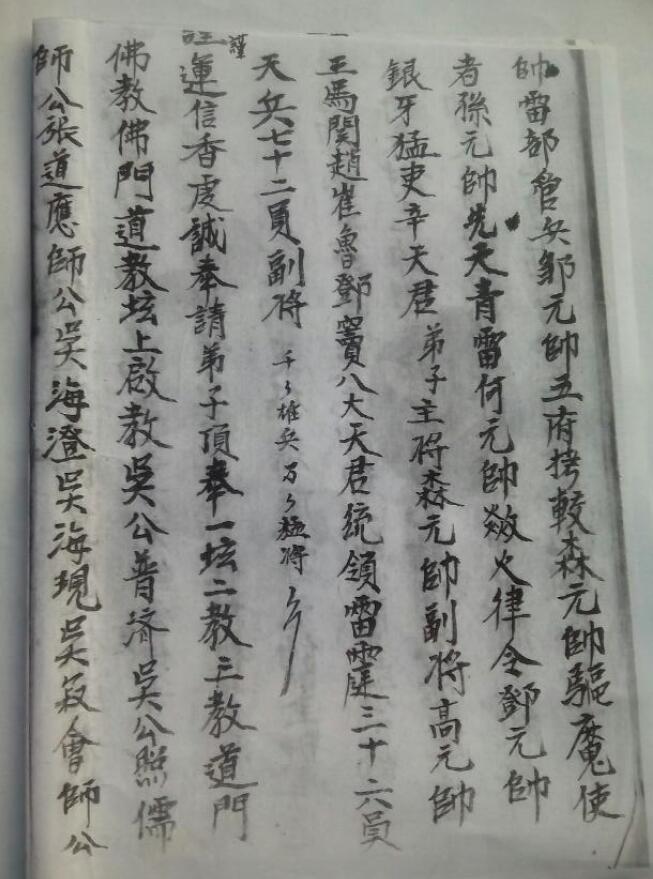 帥雷部管兵鄒元帥五府拷較森元帥驅魔使
者孫元帥先天青雷何元帥燚火律令鄧元帥
銀牙猛吏辛天君弟子主将森元帥副将高元帥
王馬関趙崔魯鄧竇八大天君統領雷霆三十六員
天兵七十二員副将千〻雄兵万〻猛将
謹
運信香虔誠奉請弟子頂奉一坛二教三教道門
佛教佛門道教坛上啟教吳公普济吳公照儒
師公张道應師公吳海澄吳海現吳會師公